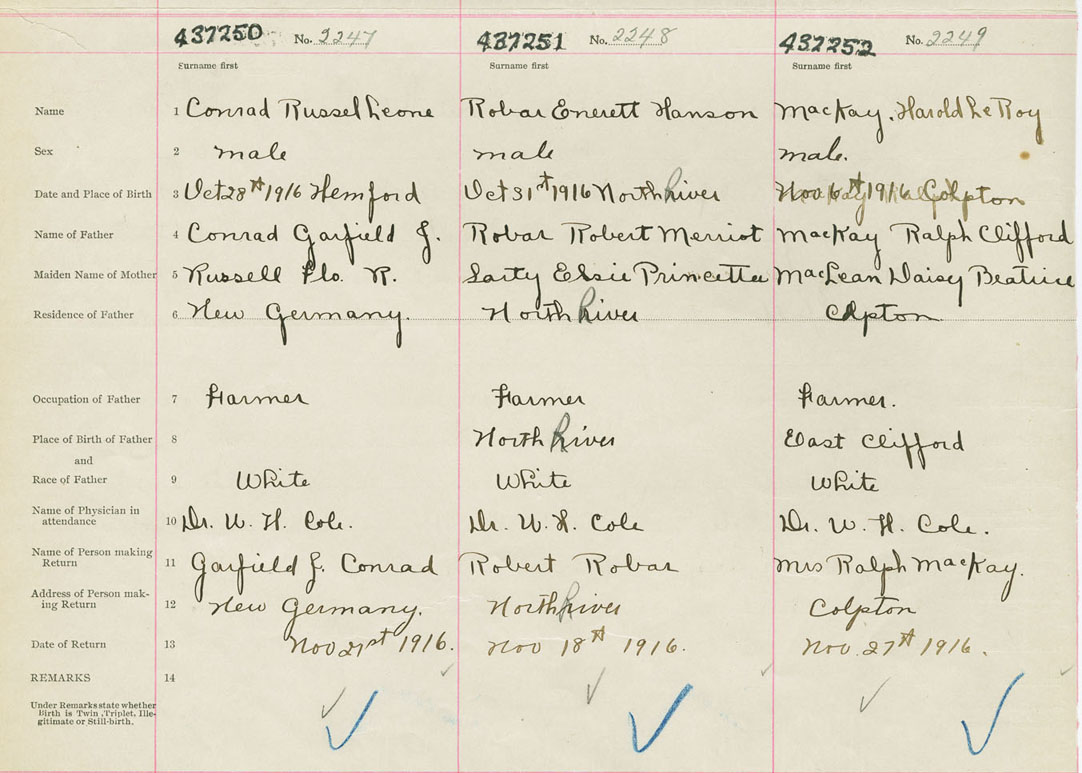 437250 No. 2247 437251 No. 2248 437252 No. 2249
Surname first Surname first Surname first
Name 1 Conrad Russel Leone Robar Everett Hanson MacKay, Harold Le Roy
Sex 2 male male male.
Date and Place of Birth 3 Oct 28th 1916 Hemford Oct 31st 1916 North River Nov 6th 1916 Colpton
Name of Father 4 Conrad Garfield J. Robar Robert Merriot MacKay Ralph Clifford
Maiden Name of Mother 5 Russell Flo. R. Sarty Elsie Princetta MacLean Daisy Beatrice
Residence of Father 6 New Germany. North River Colpton
Occupation of Father 7 Farmer Farmer Farmer.
Place of Birth of Father 8 North River East Clifford
and
Race of Father 9 White White White
Name of Physician in
attendance 10 Dr. W. H. Cole. Dr. W. H. Cole Dr. W. H. Cole.
Name of Person making
Return 11 Garfield J. Conrad Robert Robar Mrs Ralph MacKay.
Address of Person mak-
ing Return 12 New Germany. North River Colpton
Date of Return 13 Nov 21st 1916. Nov 18th 1916. Nov. 27th 1916.
REMARKS 14
Under Remarks state whether
Birth is Twin, Triplet, Ille-
gitimate or Still-birth.